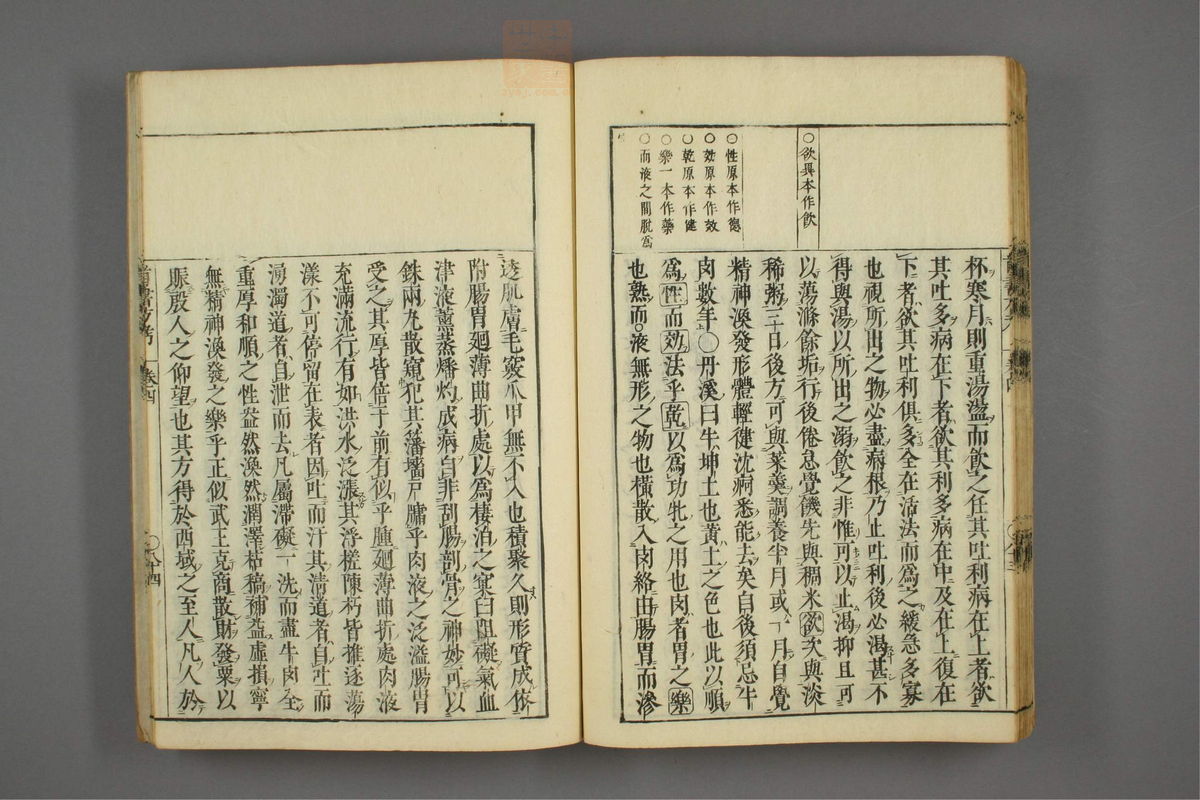 ○欲異本作飲
○性原本作德
○効原本作效
○乾原本作健
○樂一本作藥
○而液之間脫爲
杯寒月則重湯盪而飲之任其吐利病在上者欲
其吐多病在下者欲其利多病在中及在上復在
下者欲其吐利俱多全在活法而爲之緩急多寡
也視所出之物必盡病根乃止吐利後必渴甚不
得與湯以所出之溺飲之非惟可以止渴抑且可
以蕩滌餘垢行後倦息覺饑先與稠米欲次與淡
稀粥三日後方可與菜羹調養半月或一月自覺
精神渙發形體輕健沈痾悉能去矣自後須忌牛
肉數年○丹溪曰牛坤土也黃土之色也此以順
爲性而効法乎乾以爲功牝之用也肉者胃之樂
也熟而○液無形之物也橫散入肉絡由腸胃而滲
透肌膚毛竅爪甲無不入也積聚久則形質成依
附腸胃廻薄曲折處以爲棲泊之窠臼阻礙氣血
津液薰蒸燔灼成病自非刮腸剖骨之神妙可以
銖兩丸散窺犯其藩墻戸牖乎肉液之泛溢腸胃
受之其厚皆倍于前有似乎腫廻薄曲折處肉液
充滿流行有如洪水泛漲其浮槎陳朽皆推逐蕩
漾不可停留在表者因吐而汗其清道者自吐而
濁道者自泄而去凡屬滯礙一洗而盡牛肉全
重厚和順之性盎然渙然潤澤枯槁補益虛損寧
無精神渙發之樂乎正似武王克商散財發粟以
賑殷人之仰望也其方得於西域之至人凡人於
卷四
八十四